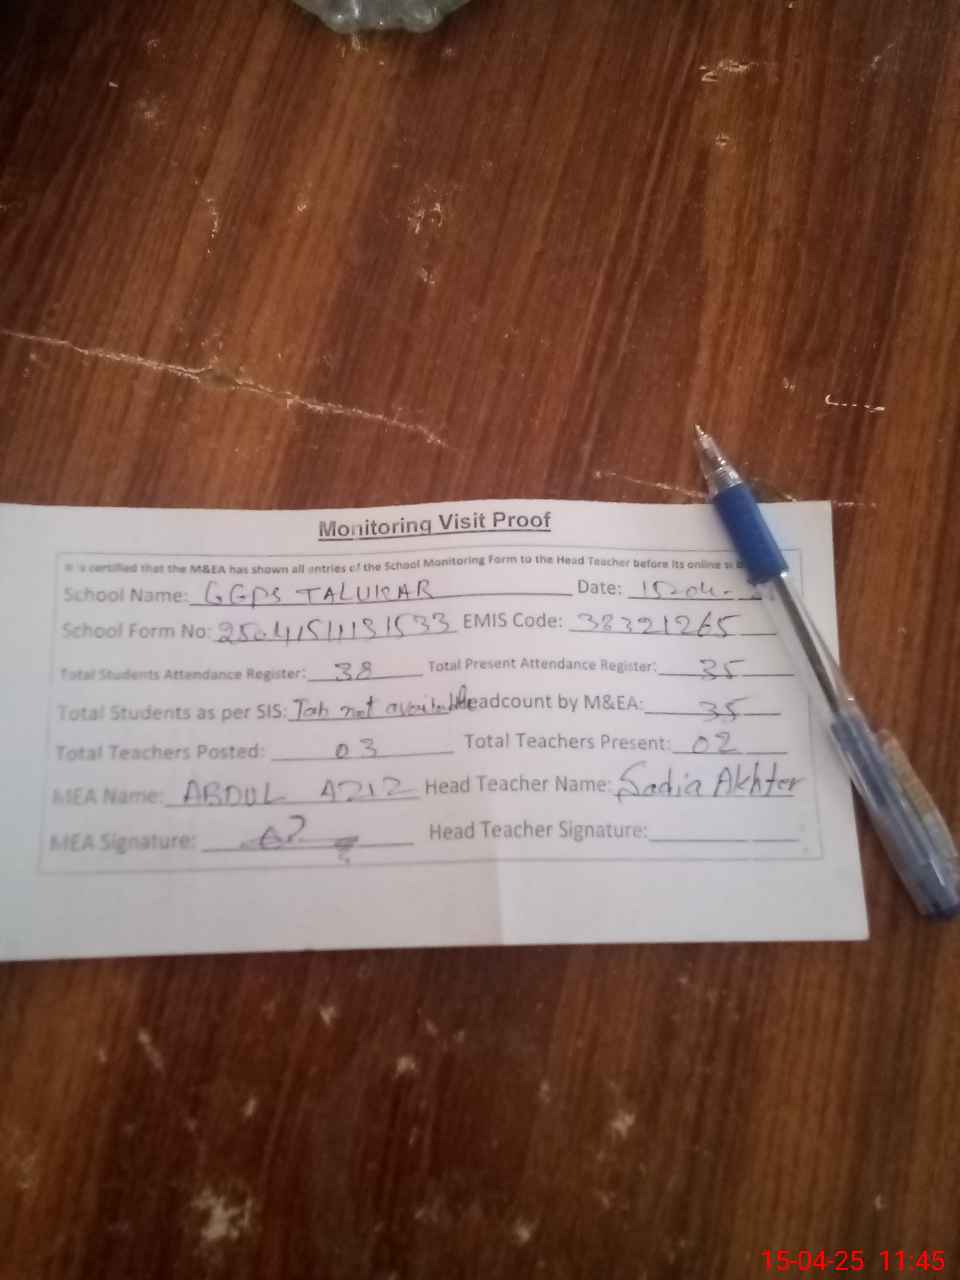 Monitoring Visit Proof
It is certified that the M&EA has shown all entries of the School Monitoring Form to the Head Teacher before its online
School Name: GGPS TALUKAR Date: 15-04-
School Form No: EMIS Code: 38321265
Total Students Attendance Register: 38 Total Present Attendance Register: 35
Total Students as per SIS: Tab not available Headcount by M&EA: 35
Total Teachers Posted: 03 Total Teachers Present: 02
MEA Name: ABDUL AZIZ Head Teacher Name: Sadia Akhter
MEA Signature: Head Teacher Signature:
15-04-25 11:45